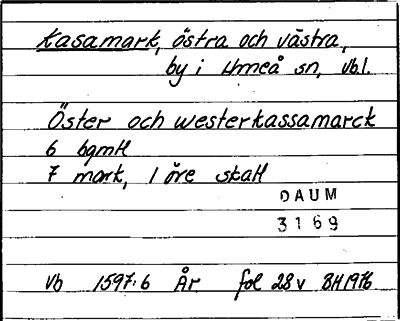 Kasamark, östra och västra,
by i Umeå sn, Vb.l.
Öster och westerkassamarck
6 bgmtl
7 mark, 1 öre skatt
DAUM
3169
Vb 1597:6 År fol 28 v BH 1976